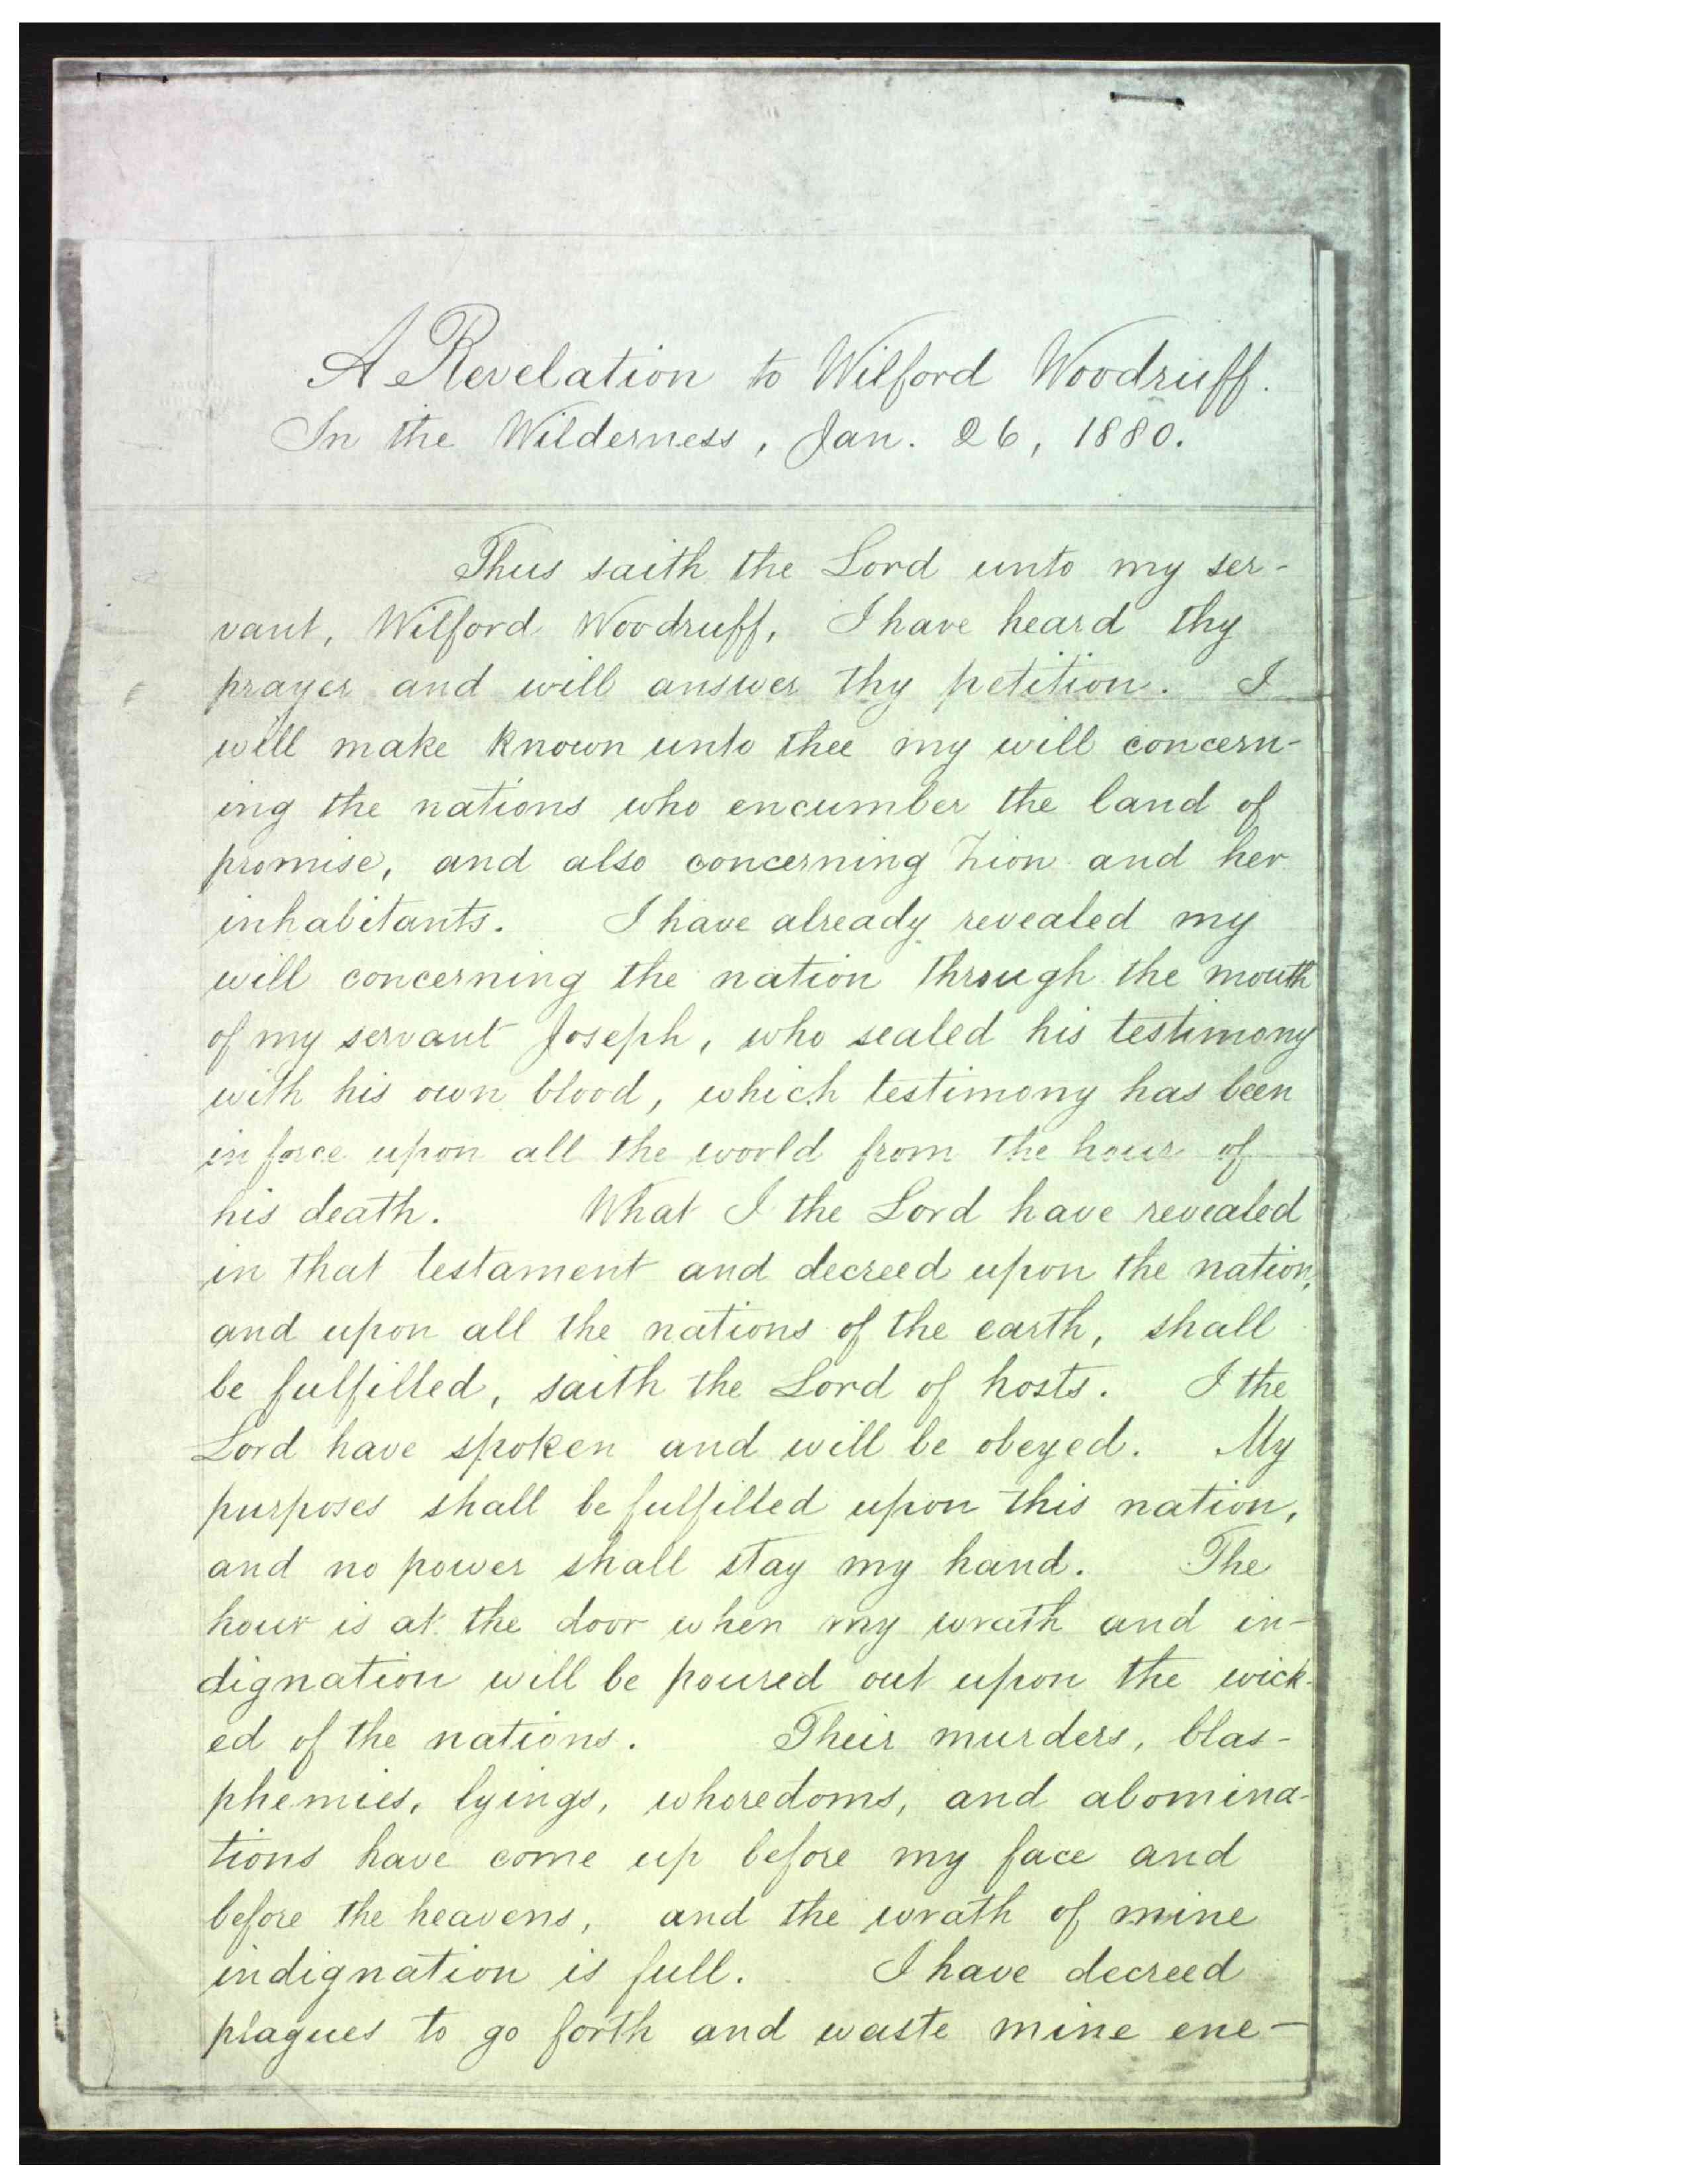 A Revelation to Wilford Woodruff.
In the Wilderness, Jan. 26, 1880.
Thus saith the Lord unto my ser-
vant, Wilford Woodruff, I have heard thy
prayer and will answer thy petition. I
will make known unto thee my will concern-
ing the nations who encumber the land of
promise, and also concerning Zion and her
inhabitants. I have already revealed my
will concerning the nation through the mouth
of my servant Joseph, who sealed his testimony
with his own blood, which testimony has been
in force upon all the world from the hour of
his death. What I the Lord have revealed
in that testament and decreed upon the nation,
and upon all the nations of the earth, shall
be fulfilled, saith the Lord of hosts. I the
Lord have spoken and will be obeyed. My
purposes shall be fulfilled upon this nation,
and no power shall stay my hand. The
hour is at the door when my wrath and in-
dignation will be poured out upon the wick-
ed of the nations. Their murders, blas-
phemies, lyings, whoredoms, and abomina-
tions have come up before my face and
before the heavens, and the wrath of mine
indignation is full. I have decreed
plagues to go forth and waste mine ene-